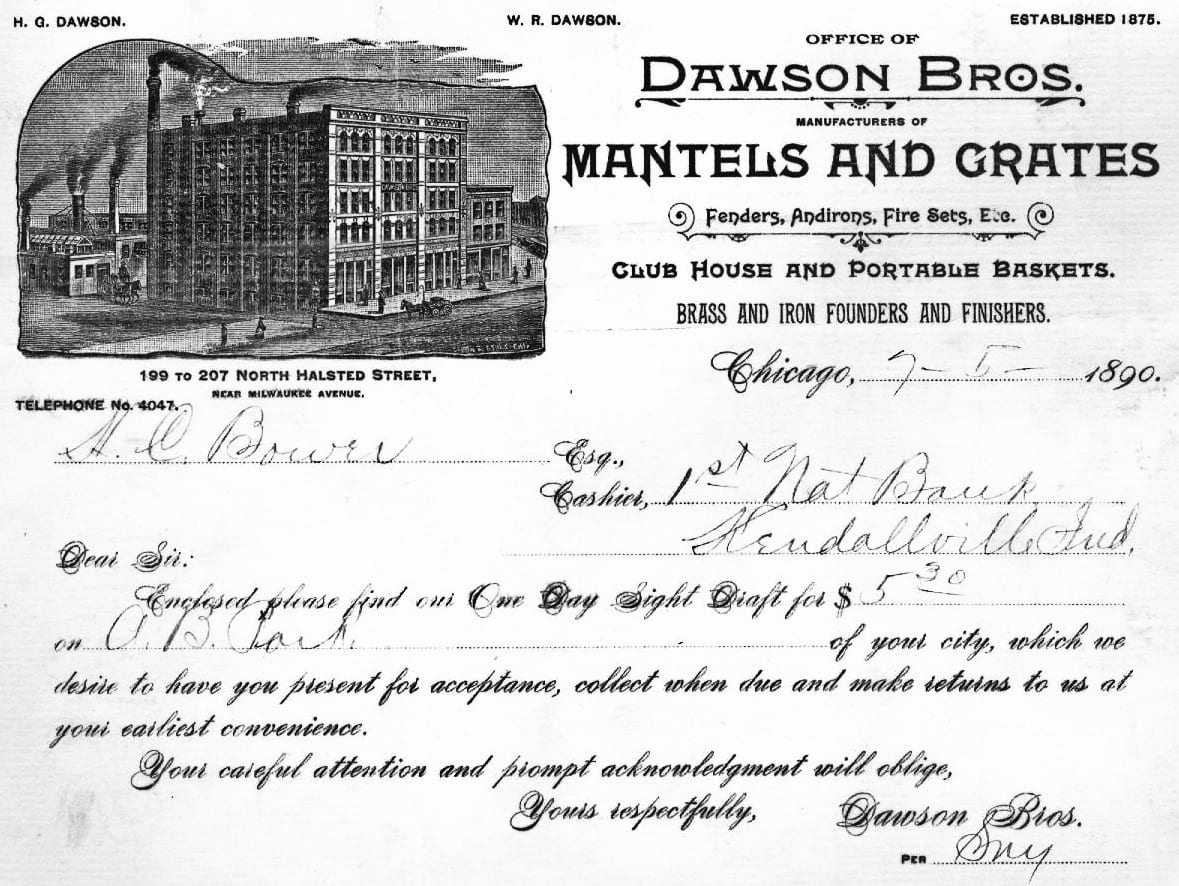 H. G. DAWSON. W. R. DAWSON. ESTABLISHED 1875.
OFFICE OF
DAWSON BROS.
MANUFACTURERS OF
MANTELS AND GRATES
Fenders, Andirons, Fire Sets, Etc.
CLUB HOUSE AND PORTABLE BASKETS.
BRASS AND IRON FOUNDERS AND FINISHERS.
199 TO 207 NORTH HALSTED STREET,
NEAR MILWAUKEE AVENUE.
TELEPHONE No. 4047.
Chicago, 7-5-1890.
H. C. Bower Esq.,
Cashier, 1st Nat Bank
Kendallville Ind.
Dear Sir:
Enclosed please find our One Day Sight Draft for $ 5 30
on O. B. of your city, which we
desire to have you present for acceptance, collect when due and make returns to us at
your earliest convenience.
Your careful attention and prompt acknowledgment will oblige,
Yours respectfully, Dawson Bros.
PER